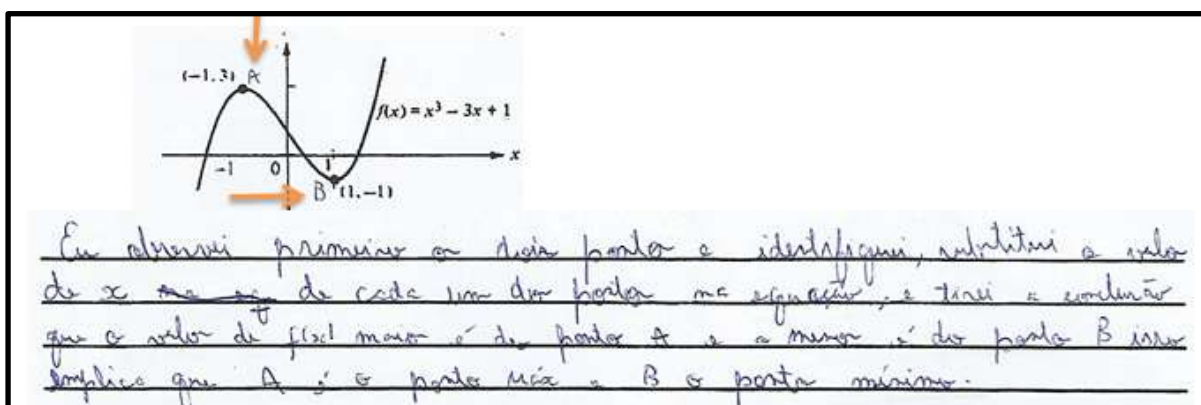 (-1, 3) A
f(x) = x³ − 3x + 1
-1 0 1 x
B (1, −1)
Eu observei primeiro os dois pontos e identifiquei, substitui o valor
de x de cada um dos pontos na equação, e tirei a conclusão
que o valor de f(x) maior é do ponto A e o menor é do ponto B isso
implica que A é o ponto máx e B o ponto mínimo.